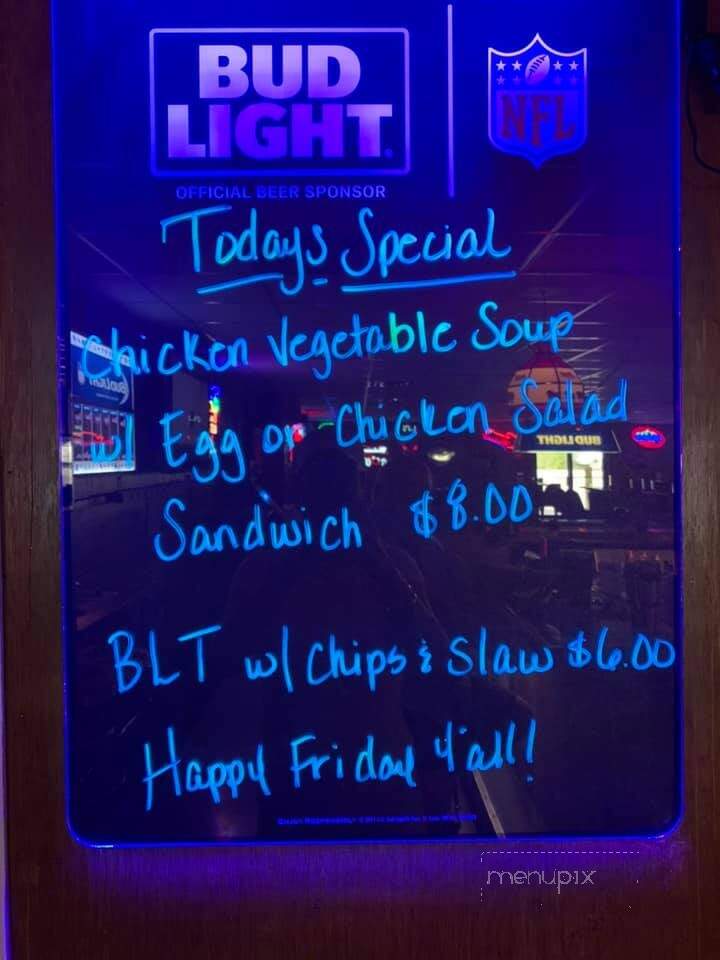 BUD
LIGHT
NFL
OFFICIAL BEER SPONSOR
Todays Special
Chicken Vegetable Soup
w/ Egg or Chicken Salad
Sandwich $8.00
BLT w/ Chips & Slaw $6.00
Happy Friday Y'all!
menupix